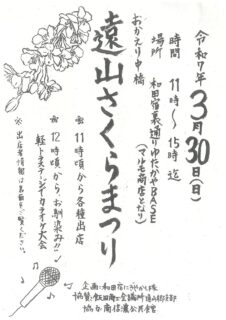 令和7年
3月30日(日)
時間 11時〜15時迄
場所 和田宿裏通りゆたかやBASE
(マルモ商店となり)
おかえり中橋
遠山さくらまつり
※11時頃から各種出店
※12時頃から、お馴染み!!
軽トラステージでカラオケ大会
※出店者情報は裏面をご覧ください。
企画:和田宿にぎやかし隊
協賛:飯田商工会議所遠山郷支部
協力:南信濃公民館